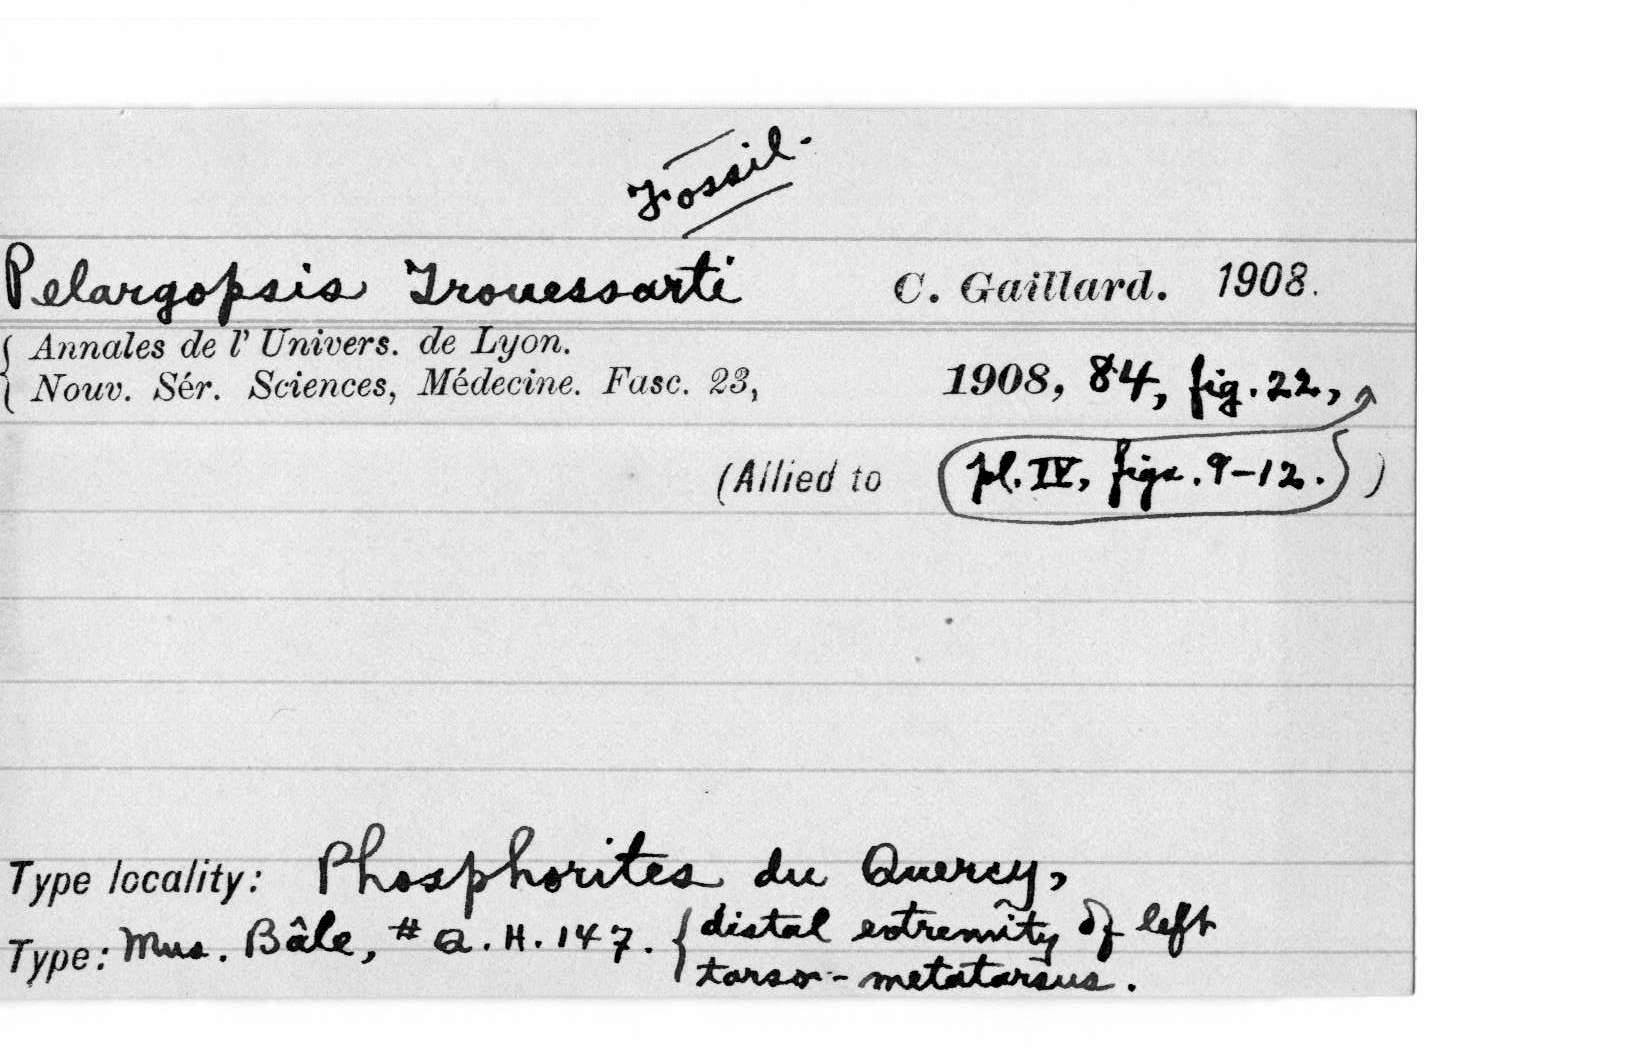 Fossil.
Pelargopsis Trouessarti C. Gaillard. 1908.
Annales de l' Univers. de Lyon.
Nouv. Sér. Sciences, Médecine. Fasc. 23, 1908, 84, fig. 22,
(Allied to pl. IV, figs. 9-12. )
Type locality: Phosphorites du Quercy,
Type: Mus. Bâle, # Q. H. 147. { distal extremity of left
tarso-metatarsus.